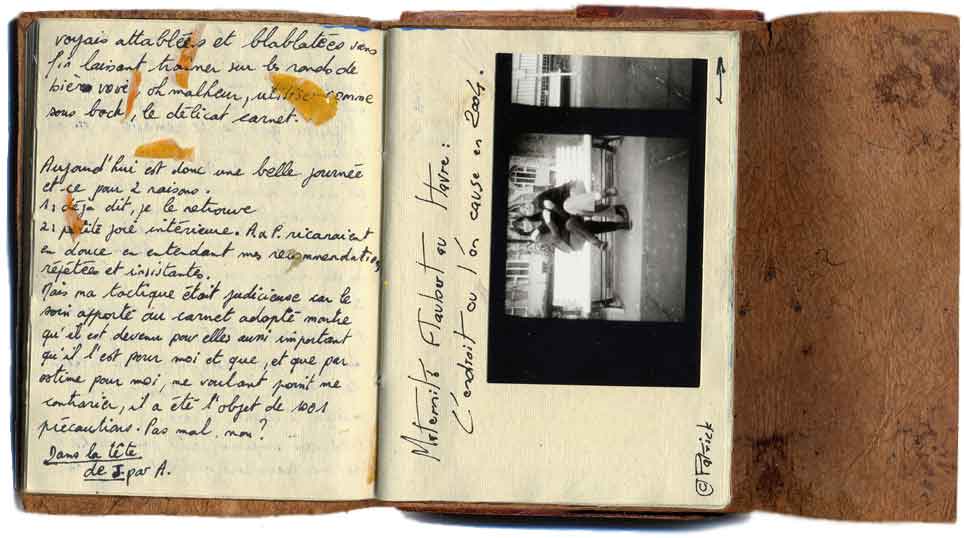 voyais attablées et blablatées sans
fin laissant traîner sur les ronds de
bière voire, oh malheur, utilisé comme
sous bock, le délicat carnet.
Aujourd'hui est donc une belle journée
et ce pour 2 raisons.
1, déjà dit, je le retrouve
2, petite joie intérieure. A & P. ricanaient
en douce en entendant mes recommendations
répétées et insistantes.
Mais ma tactique était judicieuse car le
soin apporté au carnet adopté montre
qu'il est devenu pour elles aussi important
qu'il l'est pour moi et que, et que par
estime pour moi, ne voulant point me
contrarier, il a été l'objet de 1001
précautions. Pas mal, non?
Dans la tête
de J. par A.
Maternité Flaubert au Havre:
L'endroit où l'on cause en 2004.
© Patrick